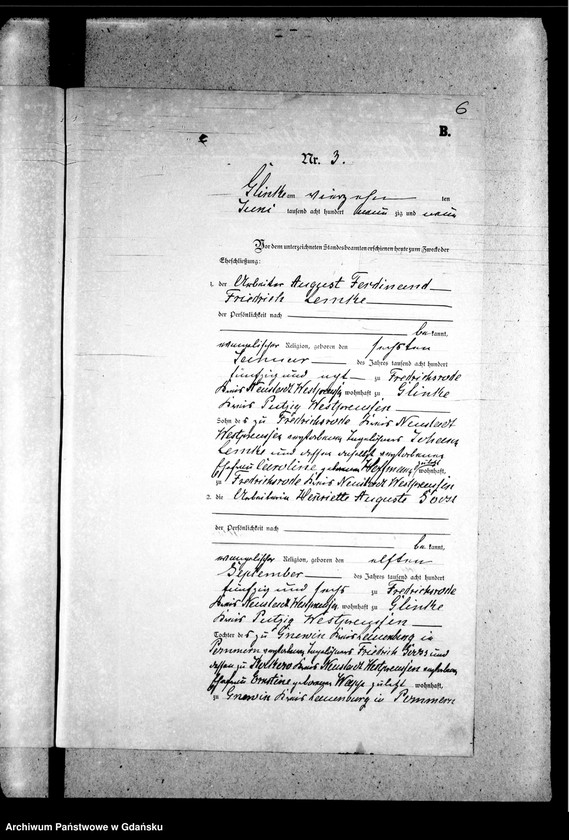 6
B.
Nr. 3.
Glinke am vierzehn ten
Juni tausend acht hundert neun zig und neun
Vor dem unterzeichneten Standesbeamten erschienen heute zum Zwecke der
Eheschließung:
1. der Arbeiter August Ferdinand
Friedrich Lemke
der Persönlichkeit nach
be kannt,
evangelischer Religion, geboren den sechsten
Januar des Jahres tausend acht hundert
fünfzig und acht zu Fredrichsrode
Kreis Neustadt Westpreußen wohnhaft zu Glinke
Kreis Putzig Westpreussen
Sohn des zu Fredrichsrode Kreis Neustadt
Westpreussen verstorbenen Johann
Lemke und dessen daselbst verstorbenen
Ehefrau Caroline geborenen Hoffmann zuletzt wohnhaft,
zu Fredrichsrode Kreis Neustadt Westpreussen
2. die Arbeiterin Henriette Auguste
der Persönlichkeit nach
be kannt,
evangelischer Religion, geboren den elften
September des Jahres tausend acht hundert
fünfzig und sechs zu Fredrichsrode
Kreis Neustadt Westpreussen wohnhaft zu Glinke
Kreis Putzig Westpreussen
Tochter des zu Gnewin Kreis Lauenburg in
Pommern verstorbenen Friedrich und
dessen zu Kreis Neustadt Westpreussen verstorbenen
Ehefrau Ernstine geborenen zuletzt wohnhaft,
zu Gnewin Kreis Lauenburg in Pommern
Archiwum Państwowe w Gdańsku